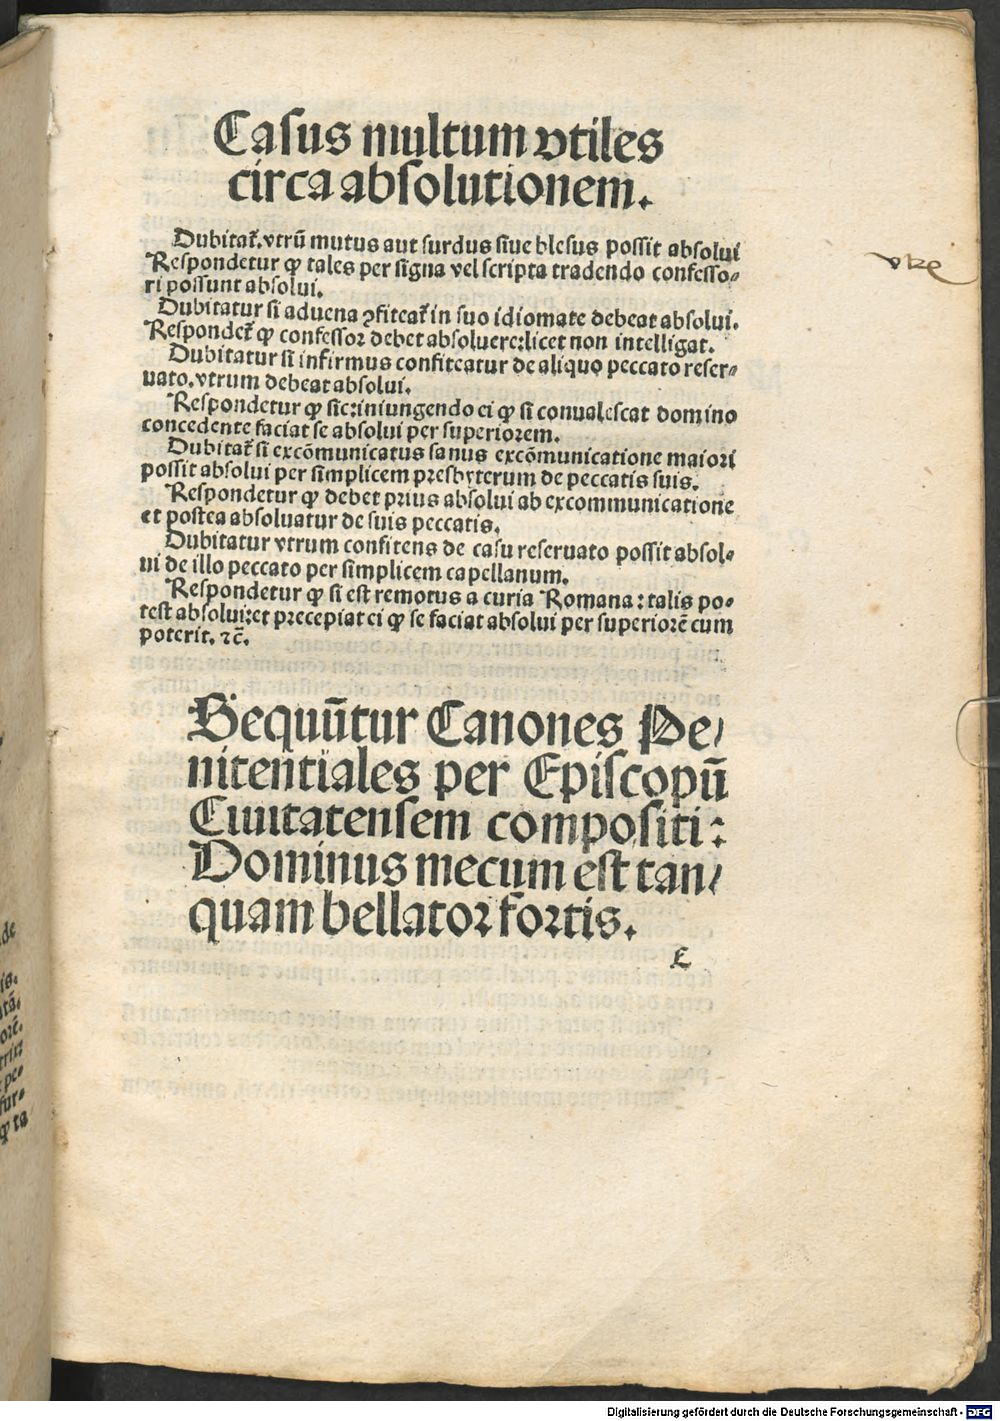 Casus multum vtiles
circa absolutionem.
Dubitat᷑. vtrū mutus aut surdus siue blesus possit absolui
Respondetur ꝙ tales per signa vel scripta tradendo confesso⸗
ri possunt absolui.
Dubitatur si aduena ꝯfiteat᷑ in suo idiomate debeat absolui.
Respondet᷑ ꝙ confessor debet absoluere: licet non intelligat.
Dubitatur si infirmus confiteatur de aliquo peccato reser⸗
uato. vtrum debeat absolui.
Respondetur ꝙ sic: iniungendo ei ꝙ si conualescat domino
concedente faciat se absolui per superiorem.
Dubitat᷑ si excōmunicatus sanus excōmunicatione maiori
possit absolui per simplicem presbyterum de peccatis suis.
Respondetur ꝙ debet prius absolui ab excommunicatione
et postea absoluatur de suis peccatis.
Dubitatur vtrum confitens de casu reseruato possit absol⸗
ui de illo peccato per simplicem capellanum.
Respondetur ꝙ si est remotus a curia Romana: talis po⸗
test absolui: et precepiat ei ꝙ se faciat absolui per superiorē cum
poterit. ⁊c̄.
Sequūtur Canones Pe/
nitentiales per Episcopū
Ciuitatensem compositi:
Dominus mecum est tan/
quam bellator fortis.
Digitalisierung gefördert durch die Deutsche Forschungsgemeinschaft - DFG